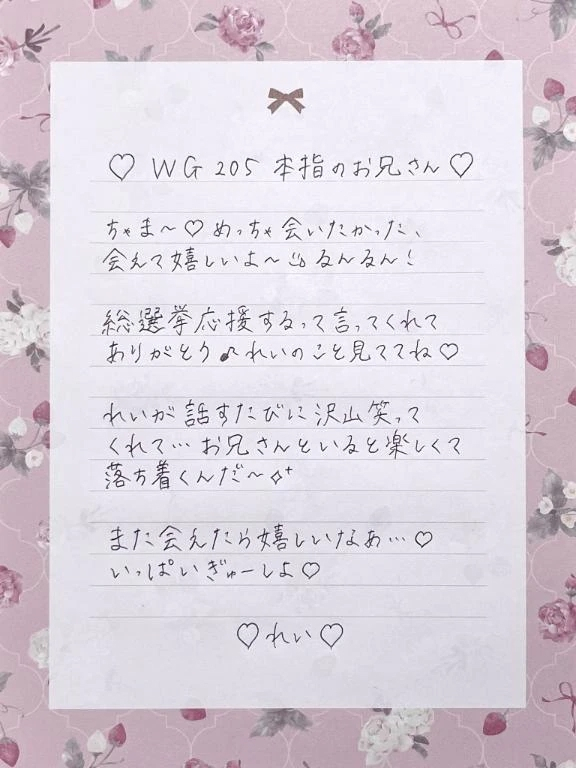 ♡ WG 205 本指のお兄さん ♡
ちゃま〜♡めっちゃ会いたかった、
会えて嬉しいよ〜♨るんるん!
総選挙応援するって言ってくれて
ありがとう♪れいのこと見ててね♡
れいが話すたびに沢山笑って
くれて…お兄さんといると楽しくて
落ち着くんだ〜✧⁺
また会えたら嬉しいなあ…♡
いっぱいぎゅーしよ♡
♡れい♡